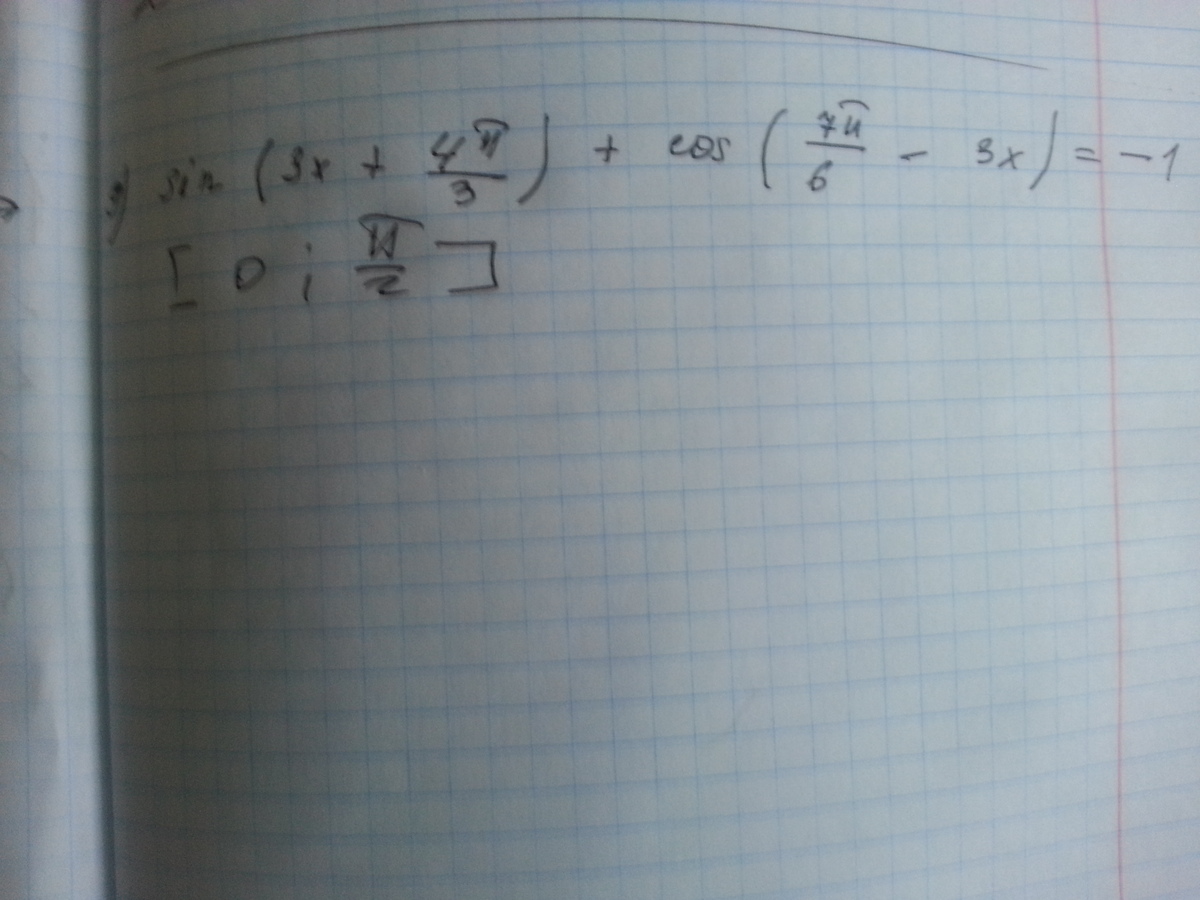 sin (3x + 4π/3) + cos (7π/6 - 3x) = -1
[0; π/2]